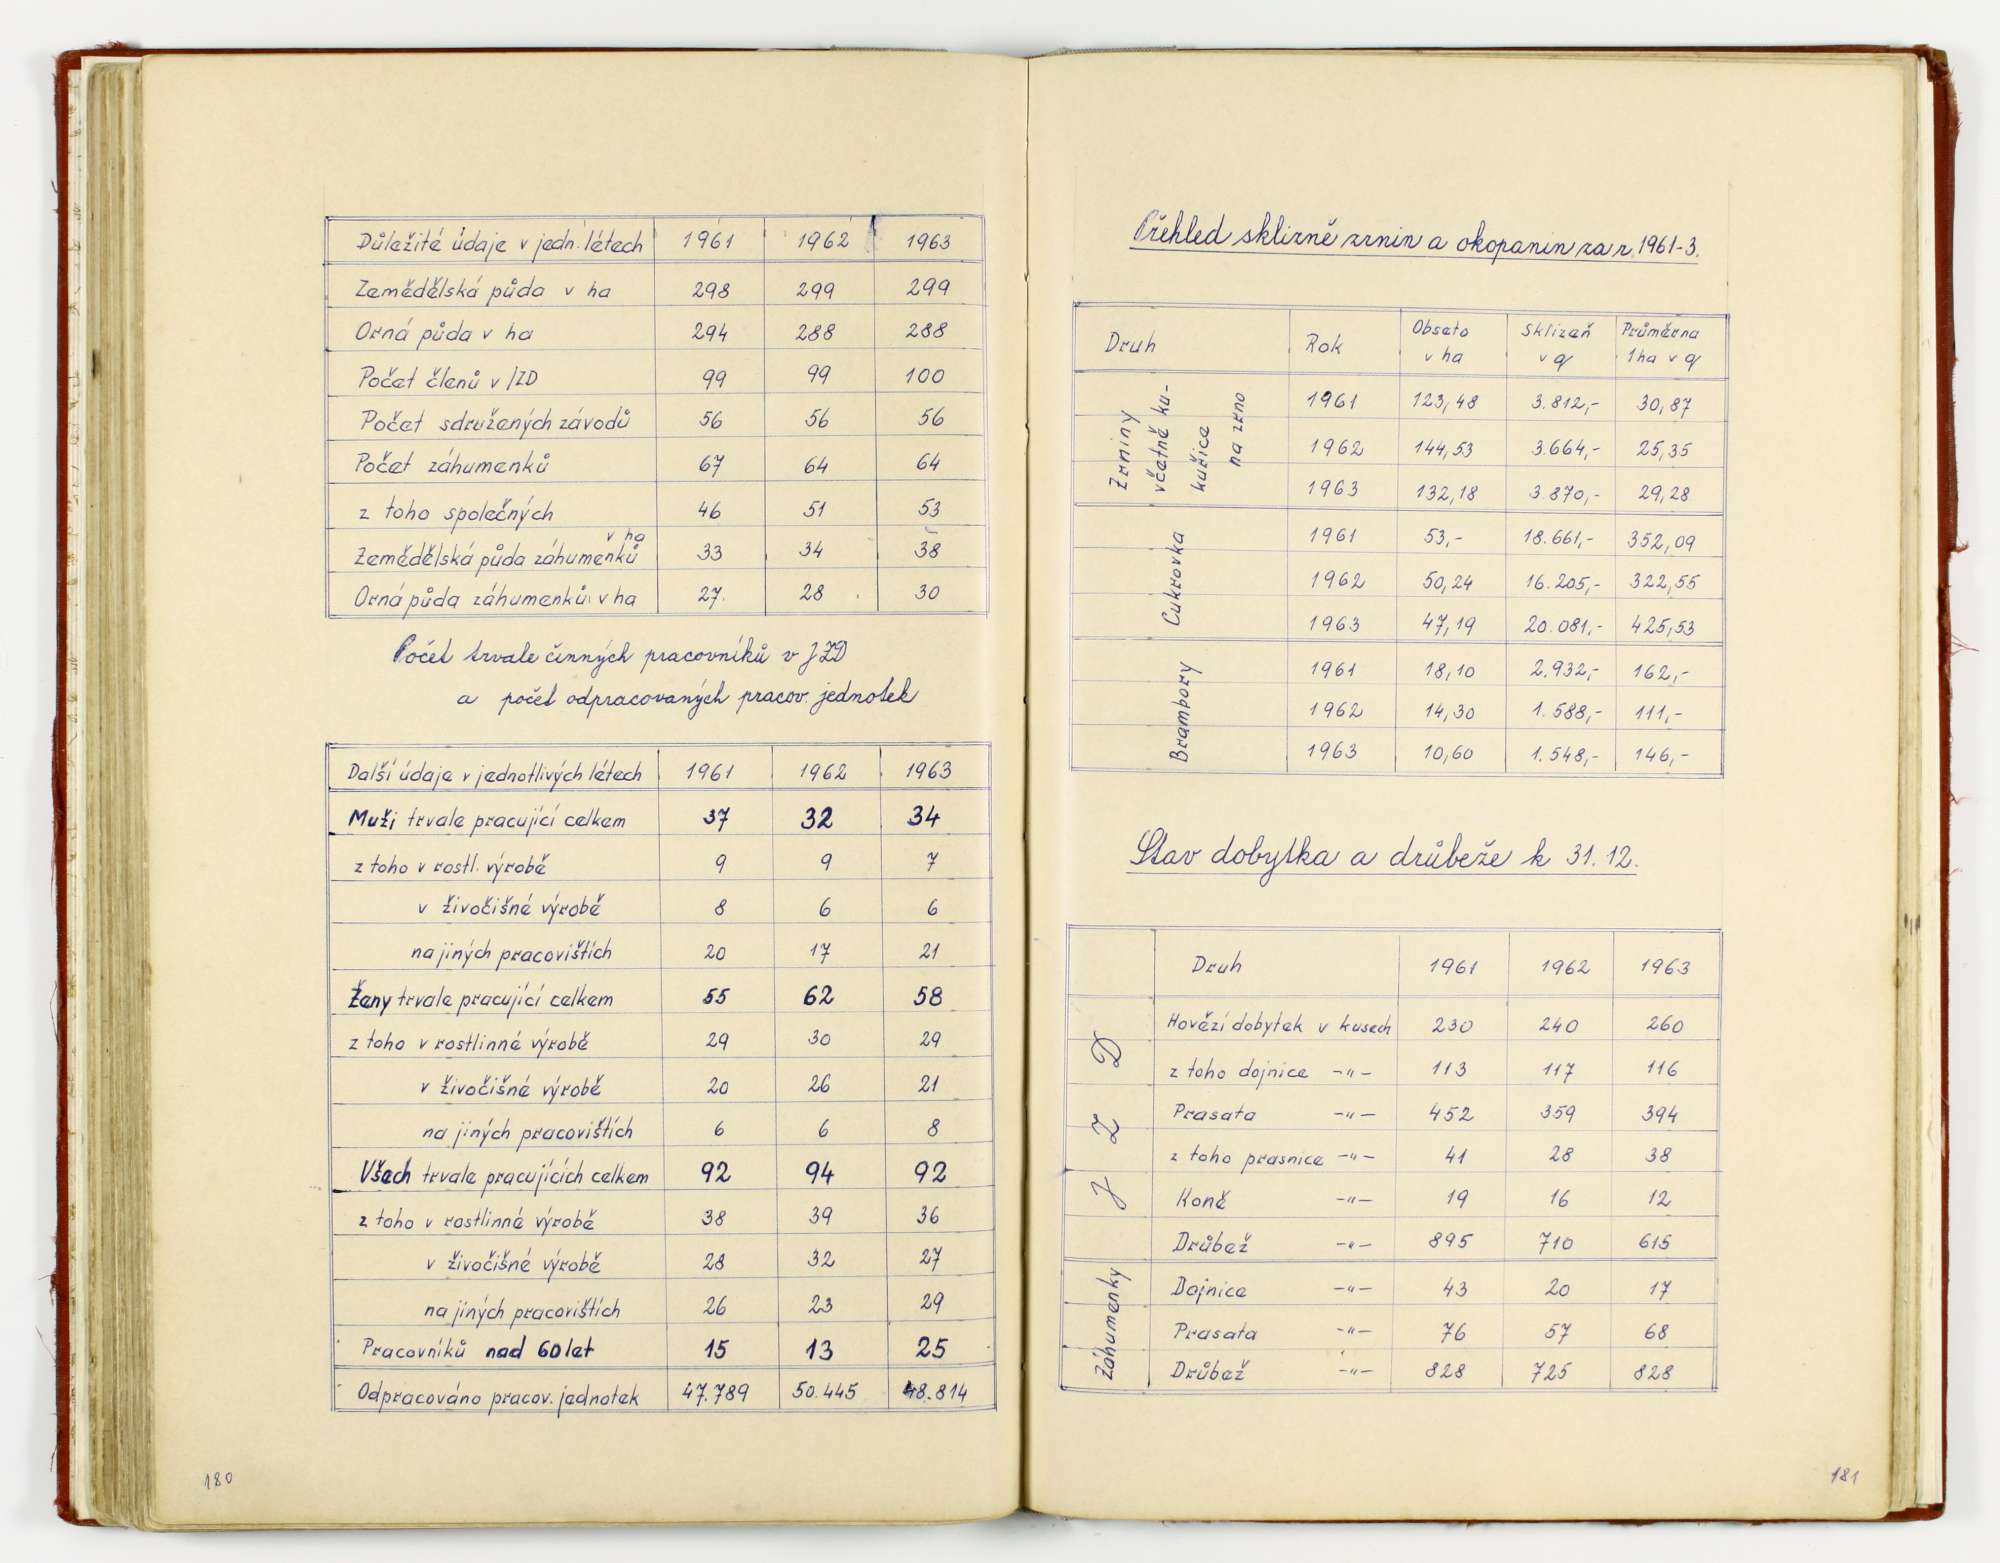 Důležité údaje v jedn. létech 1961 1962 1963
Zemědělská půda v ha 298 299 299
Orná půda v ha 294 288 288
Počet členů v JZD 99 99 100
Počet sdružených závodů 56 56 56
Počet záhumenků 67 64 64
z toho společných 46 51 53
Zemědělská půda záhumenků v ha 33 34 38
Orná půda záhumenků v ha 27 28 30
Počet trvale činných pracovníků v JZD
a počet odpracovaných pracov. jednotek
Další údaje v jednotlivých létech 1961 1962 1963
Muži trvale pracující celkem 37 32 34
z toho v rostl. výrobě 9 9 7
v živočišné výrobě 8 6 6
na jiných pracovištích 20 17 21
Ženy trvale pracující celkem 55 62 58
z toho v rostlinné výrobě 29 30 29
v živočišné výrobě 20 26 21
na jiných pracovištích 6 6 8
Všech trvale pracujících celkem 92 94 92
z toho v rostlinné výrobě 38 39 36
v živočišné výrobě 28 32 27
na jiných pracovištích 26 23 29
Pracovníků nad 60 let 15 13 25
Odpracováno pracov. jednotek 47.789 50.445 48.814
180
Přehled sklizně zrnin a okopanin za r. 1961-3.
Druh Rok Obseto v ha Sklizeň v q Průměrna 1ha v q
Zrniny včetně kukuřice na zrno
1961 123,48 3.812,- 30,87
1962 144,53 3.664,- 25,35
1963 132,18 3.870,- 29,28
Cukrovka
1961 53,- 18.661,- 352,09
1962 50,24 16.205,- 322,55
1963 47,19 20.081,- 425,53
Brambory
1961 18,10 2.932,- 162,-
1962 14,30 1.588,- 111,-
1963 10,60 1.548,- 146,-
Stav dobytka a drůbeže k 31.12.
Druh 1961 1962 1963
JZD
Hovězí dobytek v kusech 230 240 260
z toho dojnice -"- 113 117 116
Prasata -"- 452 359 394
z toho prasnice -"- 41 28 38
Koně -"- 19 16 12
Drůbež -"- 895 710 615
Záhumenky
Dojnice -"- 43 20 17
Prasata -"- 76 57 68
Drůbež -"- 828 725 828
181